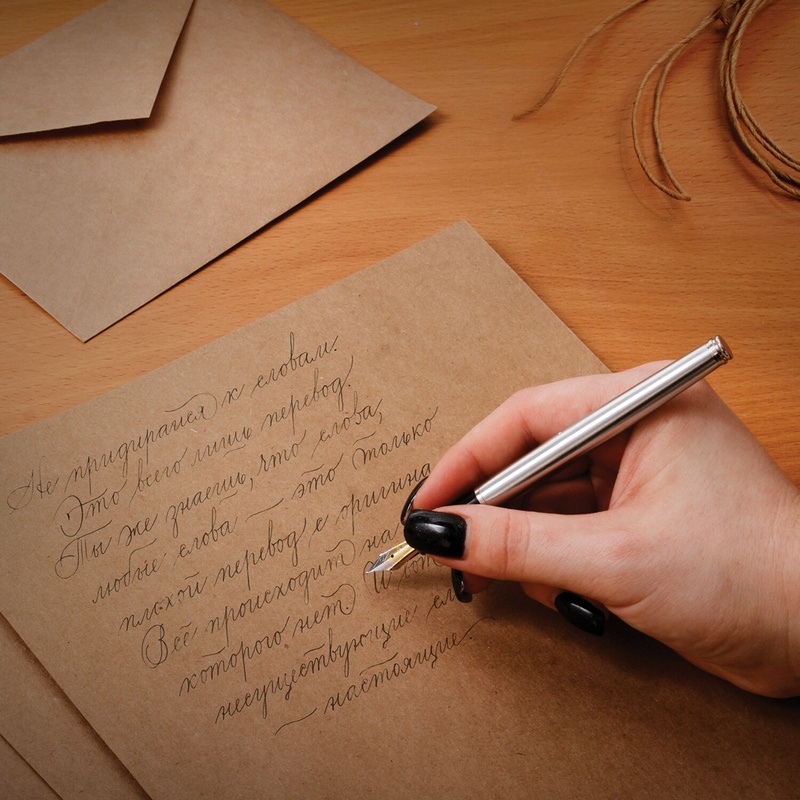 Не придирайся к словам.
Это всего лишь перевод.
Ты же знаешь, что слова,
любые слова — это только
плохой перевод с оригина
Всё происходит на
которого нет. И вот
несуществующие сл
— настоящие.